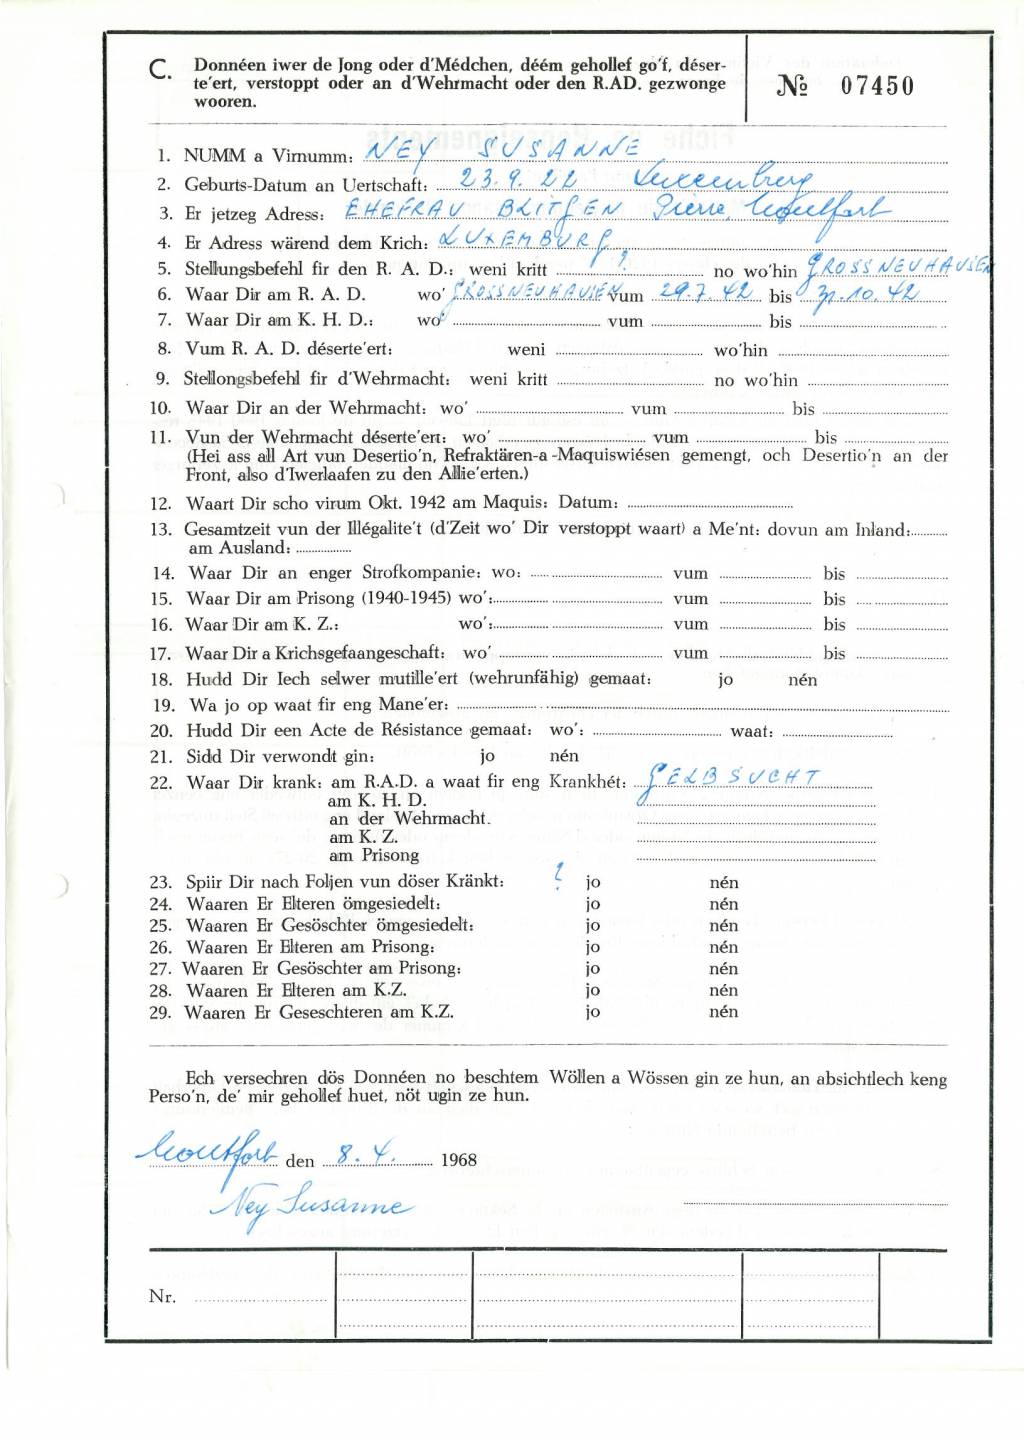 C. Donnéen iwer de Jong oder d'Médchen, déém gehollef go'f, déser-
te'ert, verstoppt oder an d'Wehrmacht oder den R.AD. gezwonge
wooren.
№ 07450
1. NUMM a Virnumm: NEY SUSANNE
2. Geburts-Datum an Uertschaft: 23.9.22 Luxemburg
3. Er jetzeg Adress: EHEFRAU BLITGEN Pierre, Moutfort
4. Er Adress wärend dem Krich: LUXEMBURG
5. Stellungsbefehl fir den R. A. D.: weni kritt ? no wo'hin GROSSNEUHAUSEN
6. Waar Dir am R. A. D. wo' GROSSNEUHAUSEN vum 29.7.42 bis 31.10.42
7. Waar Dir am K. H. D.: wo' vum bis
8. Vum R. A. D. déserte'ert: weni wo'hin
9. Stellongsbefehl fir d'Wehrmacht: weni kritt no wo'hin
10. Waar Dir an der Wehrmacht: wo' vum bis
11. Vun der Wehrmacht déserte'ert: wo' vum bis
(Hei ass all Art vun Desertio'n, Refraktären-a-Maquiswiésen gemengt, och Desertio'n an der
Front, also d'Iwerlaafen zu den Allie'erten.)
12. Waart Dir scho virum Okt. 1942 am Maquis: Datum:
13. Gesamtzeit vun der Illégalite't (d'Zeit wo' Dir verstoppt waart) a Me'nt: dovun am Inland:
am Ausland:
14. Waar Dir an enger Strofkompanie: wo: vum bis
15. Waar Dir am Prisong (1940-1945) wo': vum bis
16. Waar Dir am K. Z.: wo': vum bis
17. Waar Dir a Krichsgefaangeschaft: wo' vum bis
18. Hudd Dir Iech selwer mutille'ert (wehrunfähig) gemaat: jo nén
19. Wa jo op waat fir eng Mane'er:
20. Hudd Dir een Acte de Résistance gemaat: wo': waat:
21. Sidd Dir verwondt gin: jo nén
22. Waar Dir krank: am R.A.D. a waat fir eng Krankhét: GELBSUCHT
am K. H. D.
an der Wehrmacht.
am K. Z.
am Prisong
23. Spiir Dir nach Foljen vun döser Kränkt: ? jo nén
24. Waaren Er Elteren ömgesiedelt: jo nén
25. Waaren Er Gesöschter ömgesiedelt: jo nén
26. Waaren Er Elteren am Prisong: jo nén
27. Waaren Er Gesöschter am Prisong: jo nén
28. Waaren Er Elteren am K.Z. jo nén
29. Waaren Er Geseschteren am K.Z. jo nén
Ech versechren dös Donnéen no beschtem Wöllen a Wössen gin ze hun, an absichtlech keng
Perso'n, de' mir gehollef huet, nöt ugin ze hun.
Moutfort den 8.4. 1968
Ney Susanne
Nr.